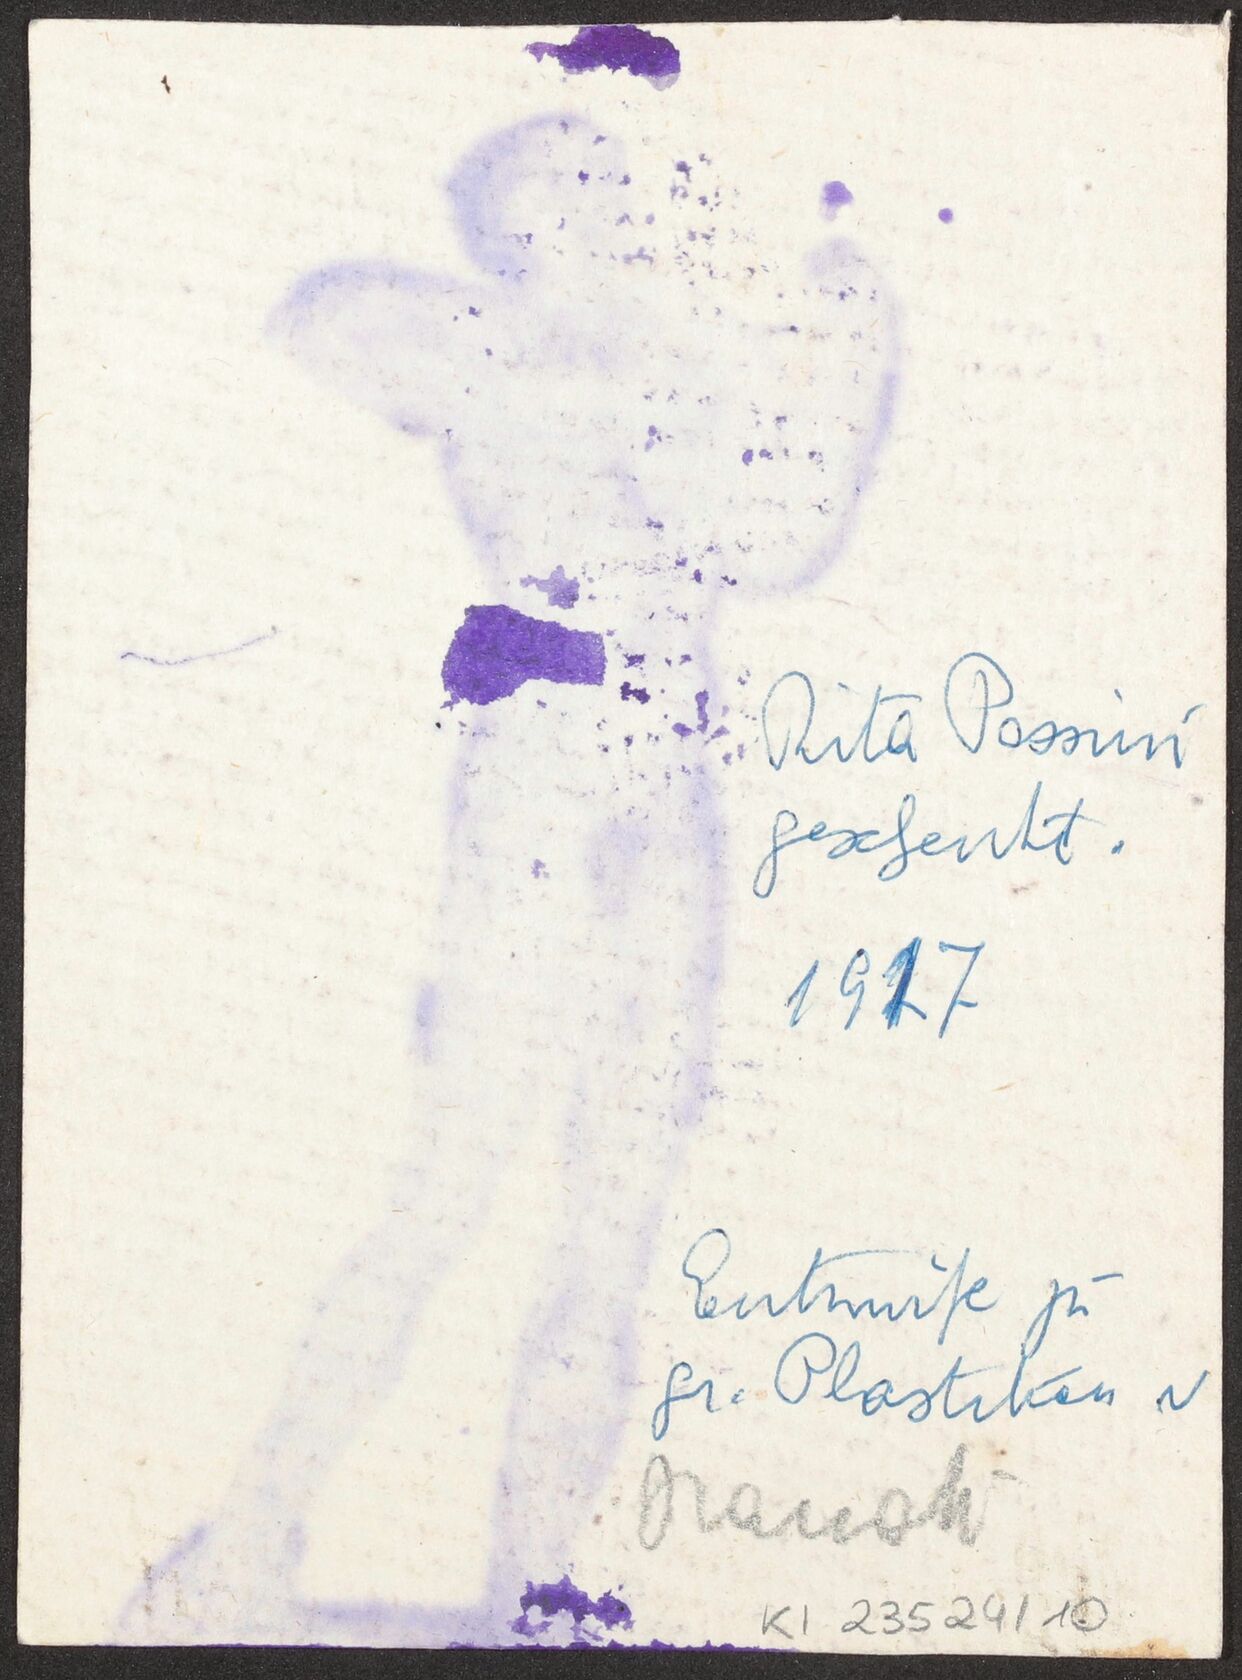 Rita Possini
geschenkt.
1917
Entwürfe zu
gr. Plastiken v
Hanak
KI 23529/10